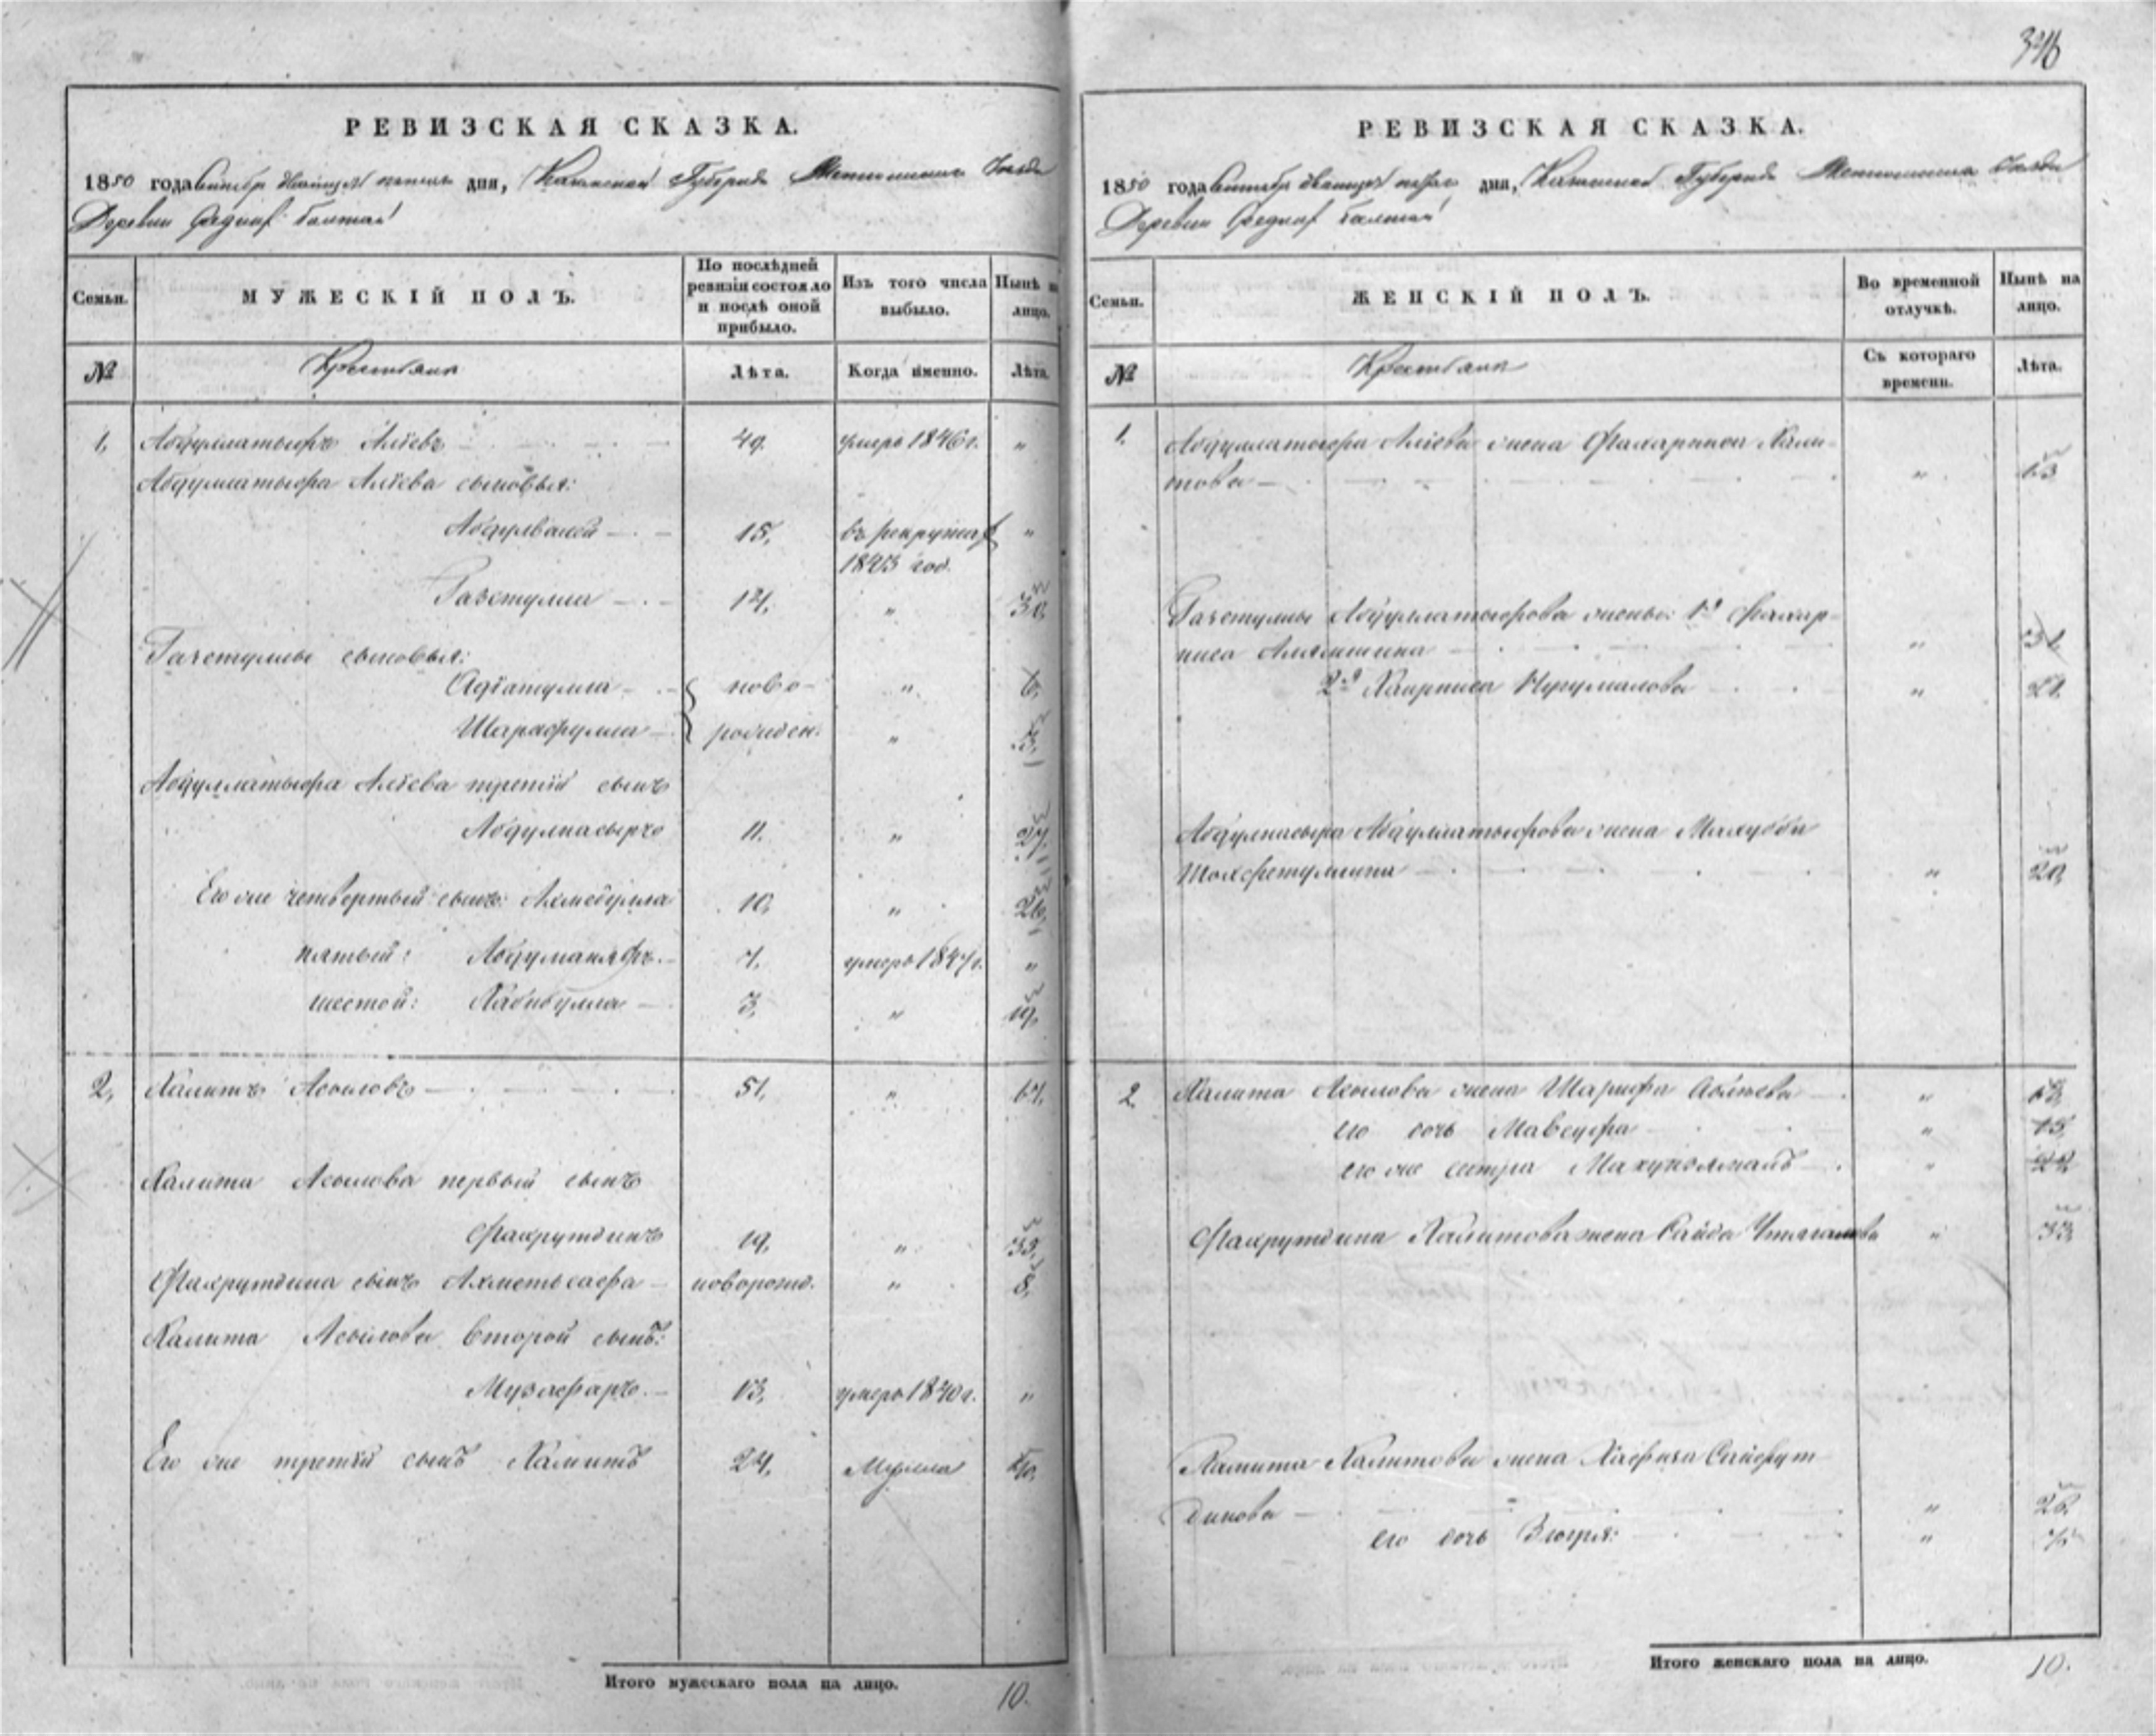 346
РЕВИЗСКАЯ СКАЗКА.
1850 года Сентября двадцать пятаго дня, Казанской Губерніи Уезда
Деревни Балтай
Семьи.
МУЖЕСКІЙ ПОЛЪ.
По послѣдней ревизіи состояло и послѣ оной прибыло.
Изъ того числа выбыло.
Нынѣ на лицо.
№
Крестьяне
Лѣта.
Когда именно.
Лѣта.
1. Абдуллатыфъ Аліевъ 49. умеръ 1846 г. "
Абдуллатыфа Аліева сыновья:
Абдулвалей 15. въ рекрутах "
1843 год.
Гизетулла 14. " 30.
Гизетуллы сыновья:
Адіатулла ново- " 6.
Шарафулла рожден. " 3.
Абдуллатыфа Аліева третій сынъ
Абдулнасыръ 11. " 27.
Его же четвертый сынъ: Ахмедулла 10. " 26.
пятый: Абдуманяфъ 7. умеръ 1847 г. "
шестой: Хабибулла 3. " 19.
2. Халитъ Асыловъ 51. " 67.
Халита Асылова первый сынъ
Фахрутдинъ 19. " 35.
Фахрутдина сынъ Ахметьсафа новорожд. " 8.
Халита Асылова второй сынъ:
Музафаръ 13. умеръ 1840 г. "
Его же третій сынъ Хамитъ 24. Мулла 40.
Итого мужескаго пола на лицо. 10.
РЕВИЗСКАЯ СКАЗКА.
1850 года Сентября двадцать пятаго дня, Казанской Губерніи Уезда
Деревни Балтай
Семьи.
ЖЕНСКІЙ ПОЛЪ.
Во временной отлучкѣ.
Нынѣ на лицо.
№
Крестьяне
Съ котораго времени.
Лѣта.
1. Абдуллатыфа Аліева жена Хали-
това " 63
Гизетуллы Абдуллатыфова жены: 1я Фахар-
ниса " 31.
2я Хаирниса Нугуманова " 21.
Абдулнасыра Абдуллатыфова жена Махубба
" 20.
2. Халита Асылова жена Шарифа "
его дочь " 15.
его же сестра " 22.
Фахрутдина Халитова жена Сайда " 33.
Хамита Халитова жена Хафиза Сайфут
динова " 26.
его дочь Зюгря: "
Итого женскаго пола на лицо. 10.